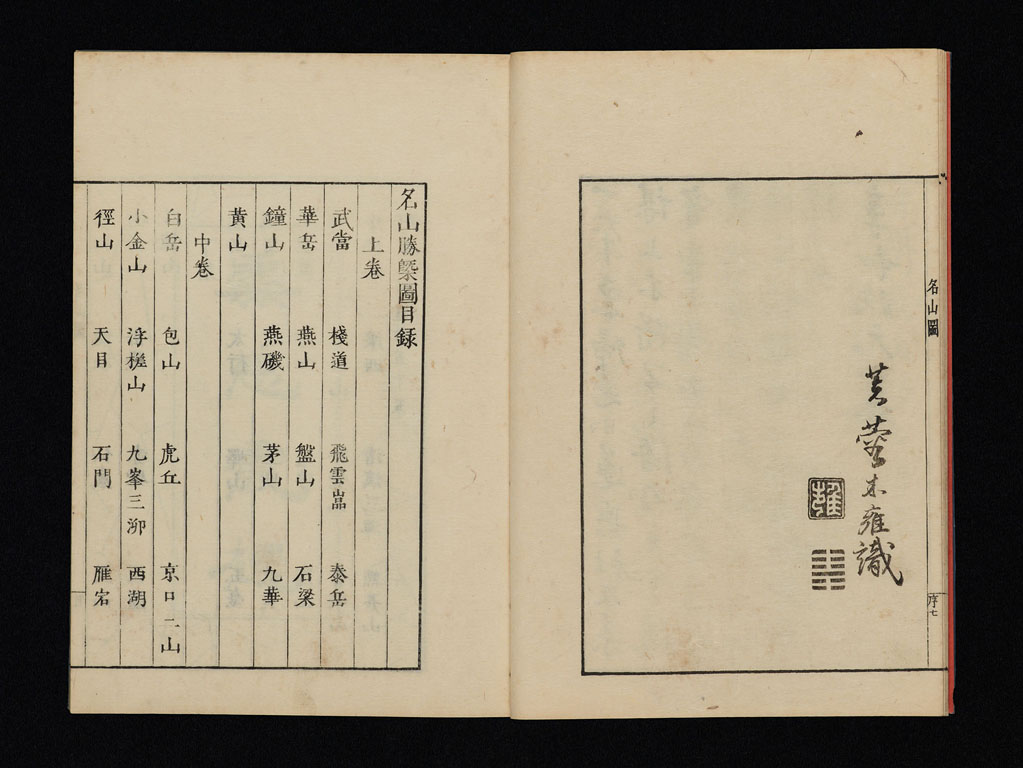 名山圖
序七
芙蓉木雍識
雍
名山勝槩圖目録
上卷
武當 棧道 飛雲嵓 泰岳
華岳 燕山 盤山 石梁
鐘山 燕磯 茅山 九華
黃山
中卷
白岳 包山 虎丘 京口二山
小金山 浮槎山 九峯三泖 西湖
徑山 天目 石門 雁宕